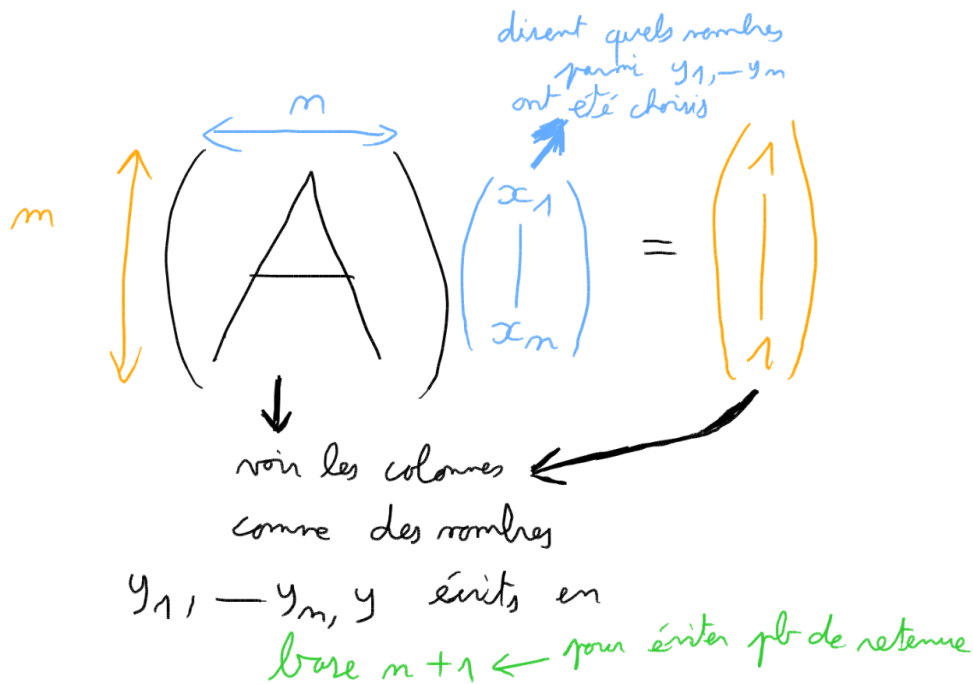 disent quels nombres
parmi y1, — yn
ont été choisis
n
m
A
x1
xn
=
1
1
voir les colonnes
comme des nombres
y1, — yn, y écrits en
base n + 1 ← pour éviter pb de retenue